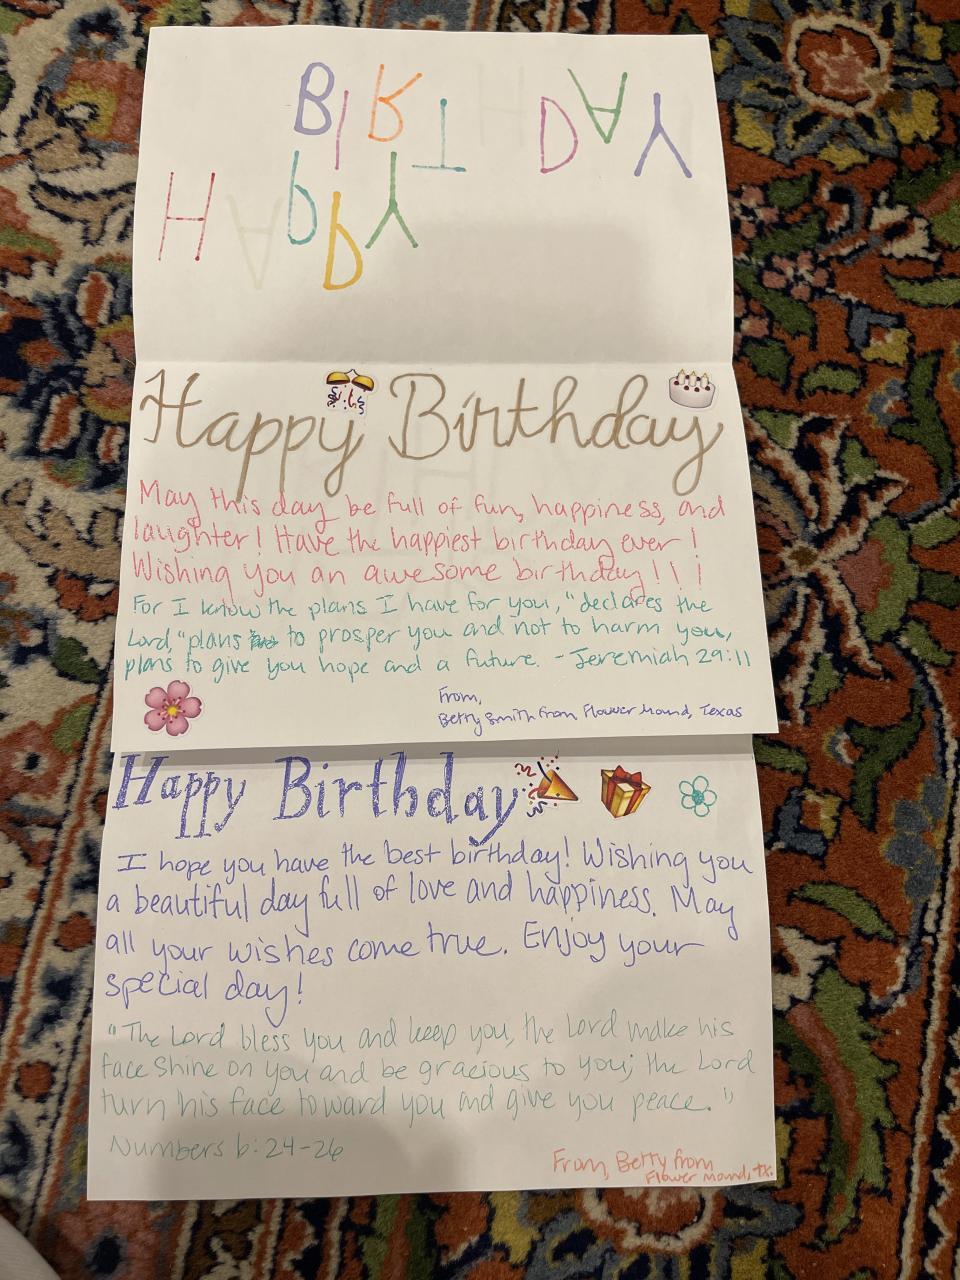 HAPPY
BIRTHDAY
Happy Birthday
May this day be full of fun, happiness, and
laughter! Have the happiest birthday ever!
Wishing you an awesome birthday!!!
For I know the plans I have for you, "declares the
Lord, "plans to prosper you and not to harm you,
plans to give you hope and a future. - Jeremiah 29:11
From,
Betty Smith from Flower Mound, Texas
Happy Birthday
I hope you have the best birthday! Wishing you
a beautiful day full of love and happiness. May
all your wishes come true. Enjoy your
special day!
"The Lord bless you and keep you, the Lord make his
face shine on you and be gracious to you; the Lord
turn his face toward you and give you peace."
Numbers 6:24-26
From, Betty from
Flower Mound, tx.